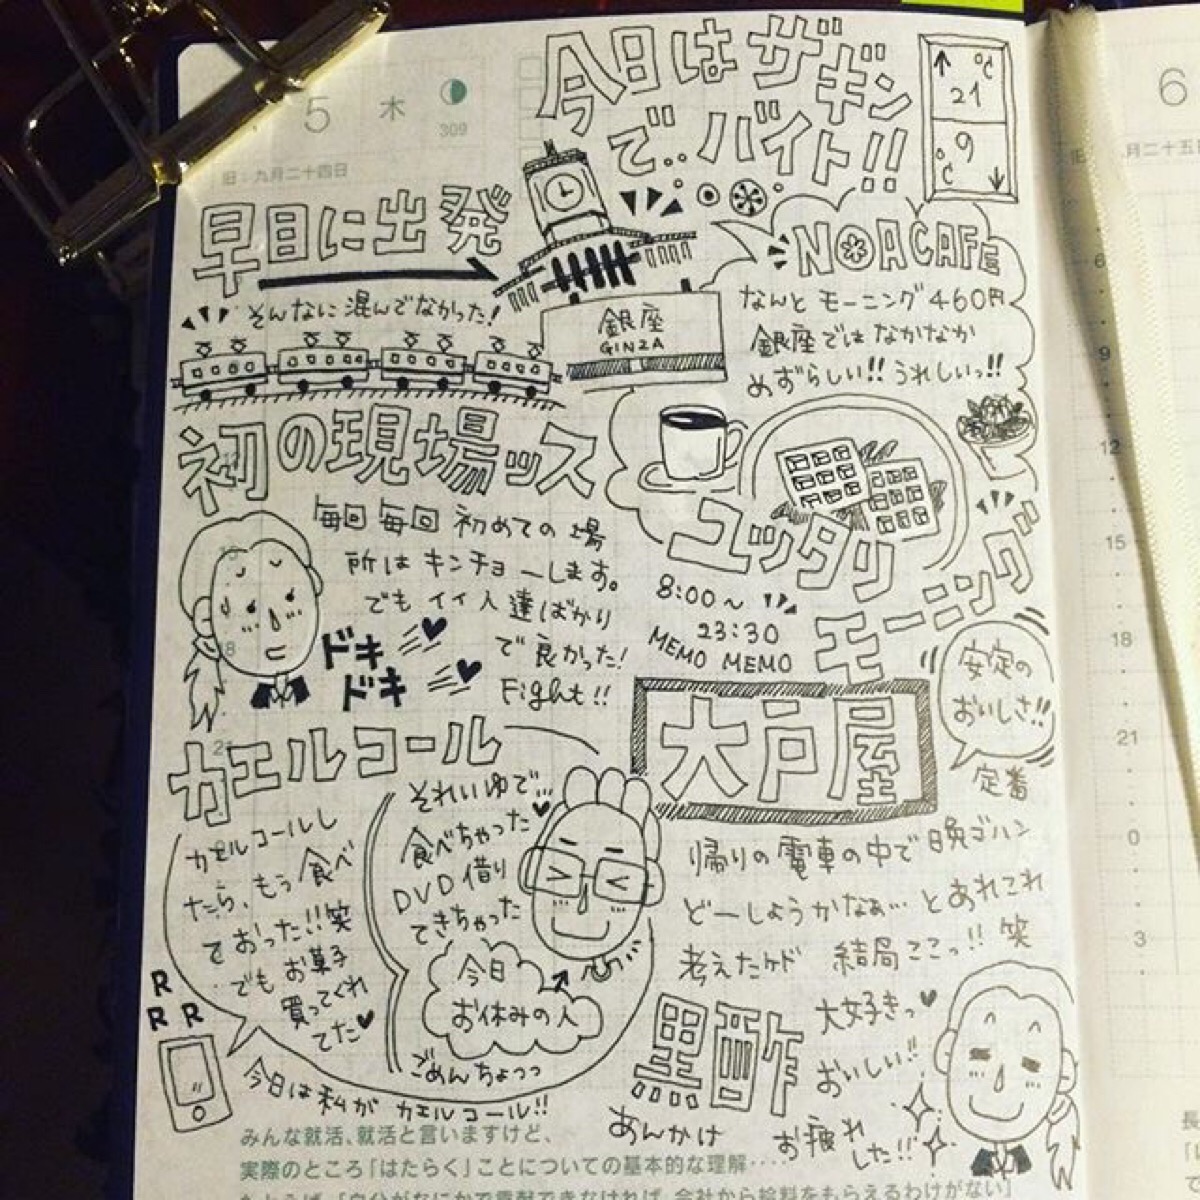 5 木
309
旧：九月二十四日
今日はザギン
で‥バイト!!
↑ ℃
21
9
℃ ↓
早目に出発
そんなに混んでなかった!
銀座
GINZA
NOACAFE
なんと モーニング460円
銀座では なかなか
めずらしい!! うれしいっ!!
初の現場ッス
毎回毎回 初めての場
所は キンチョーします。
でも イイ人達ばかり
で良かった!
Fight!!
ドキ
ドキ
ユッタリ
モーニング
8:00〜
23:30
MEMO MEMO
大戸屋
安定の
おいしさ!!
定番
帰りの電車の中で 晩ゴハン
どーしようかなぁ… とあれこれ
考えたケド 結局ここっ!! 笑
黒酢
あんかけ
大好きっ
おいしい!!
お疲れ
した!!
カエルコール
カエルコールし
たら、もう食べ
ておった!!笑
でも お菓子
買ってくれ
てた
それいゆで…
食べちゃった
DVD借り
てきちゃった
今日
お休みの人
ごめんちょっっ
R
R R
今日は私が カエルコール!!
みんな就活、就活と言いますけど、
実際のところ「はたらく」ことについての基本的な理解‥‥
たとえば、「自分がなにかで貢献できなければ、会社から給料をもらえるわけがない」
6
月二十五
6
9
12
15
18
21
0
3